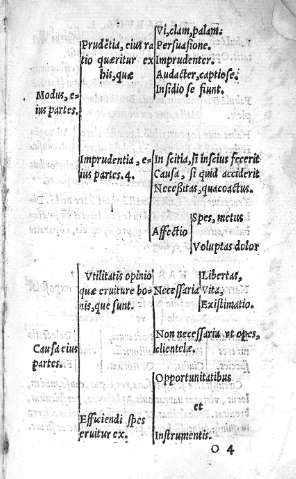 Modus, e-
ius partes.
Prudẽtia, eius ra
tio quæritur ex
his, quæ
Vi, clam, palam.
Persuasione.
Imprudenter.
Audacter, captiose.
Insidiose fiunt.
Imprudentia, e-
ius partes. 4.
Inscitia, si inscius fecerit
Causa, si quid acciderit
Necessitas, qua coactus.
Affectio
Spes, metus
Voluptas dolor
Causa eius
partes.
Vtilitatis opinio
quæ eruitur è bo-
nis, quę sunt.
Necessaria
Libertas,
Vita,
Existimatio.
Non necessaria vt opes,
clientelæ.
Efficiendi spes
eruitur ex.
Opportunitatibus
et
Instrumentis.
O 4